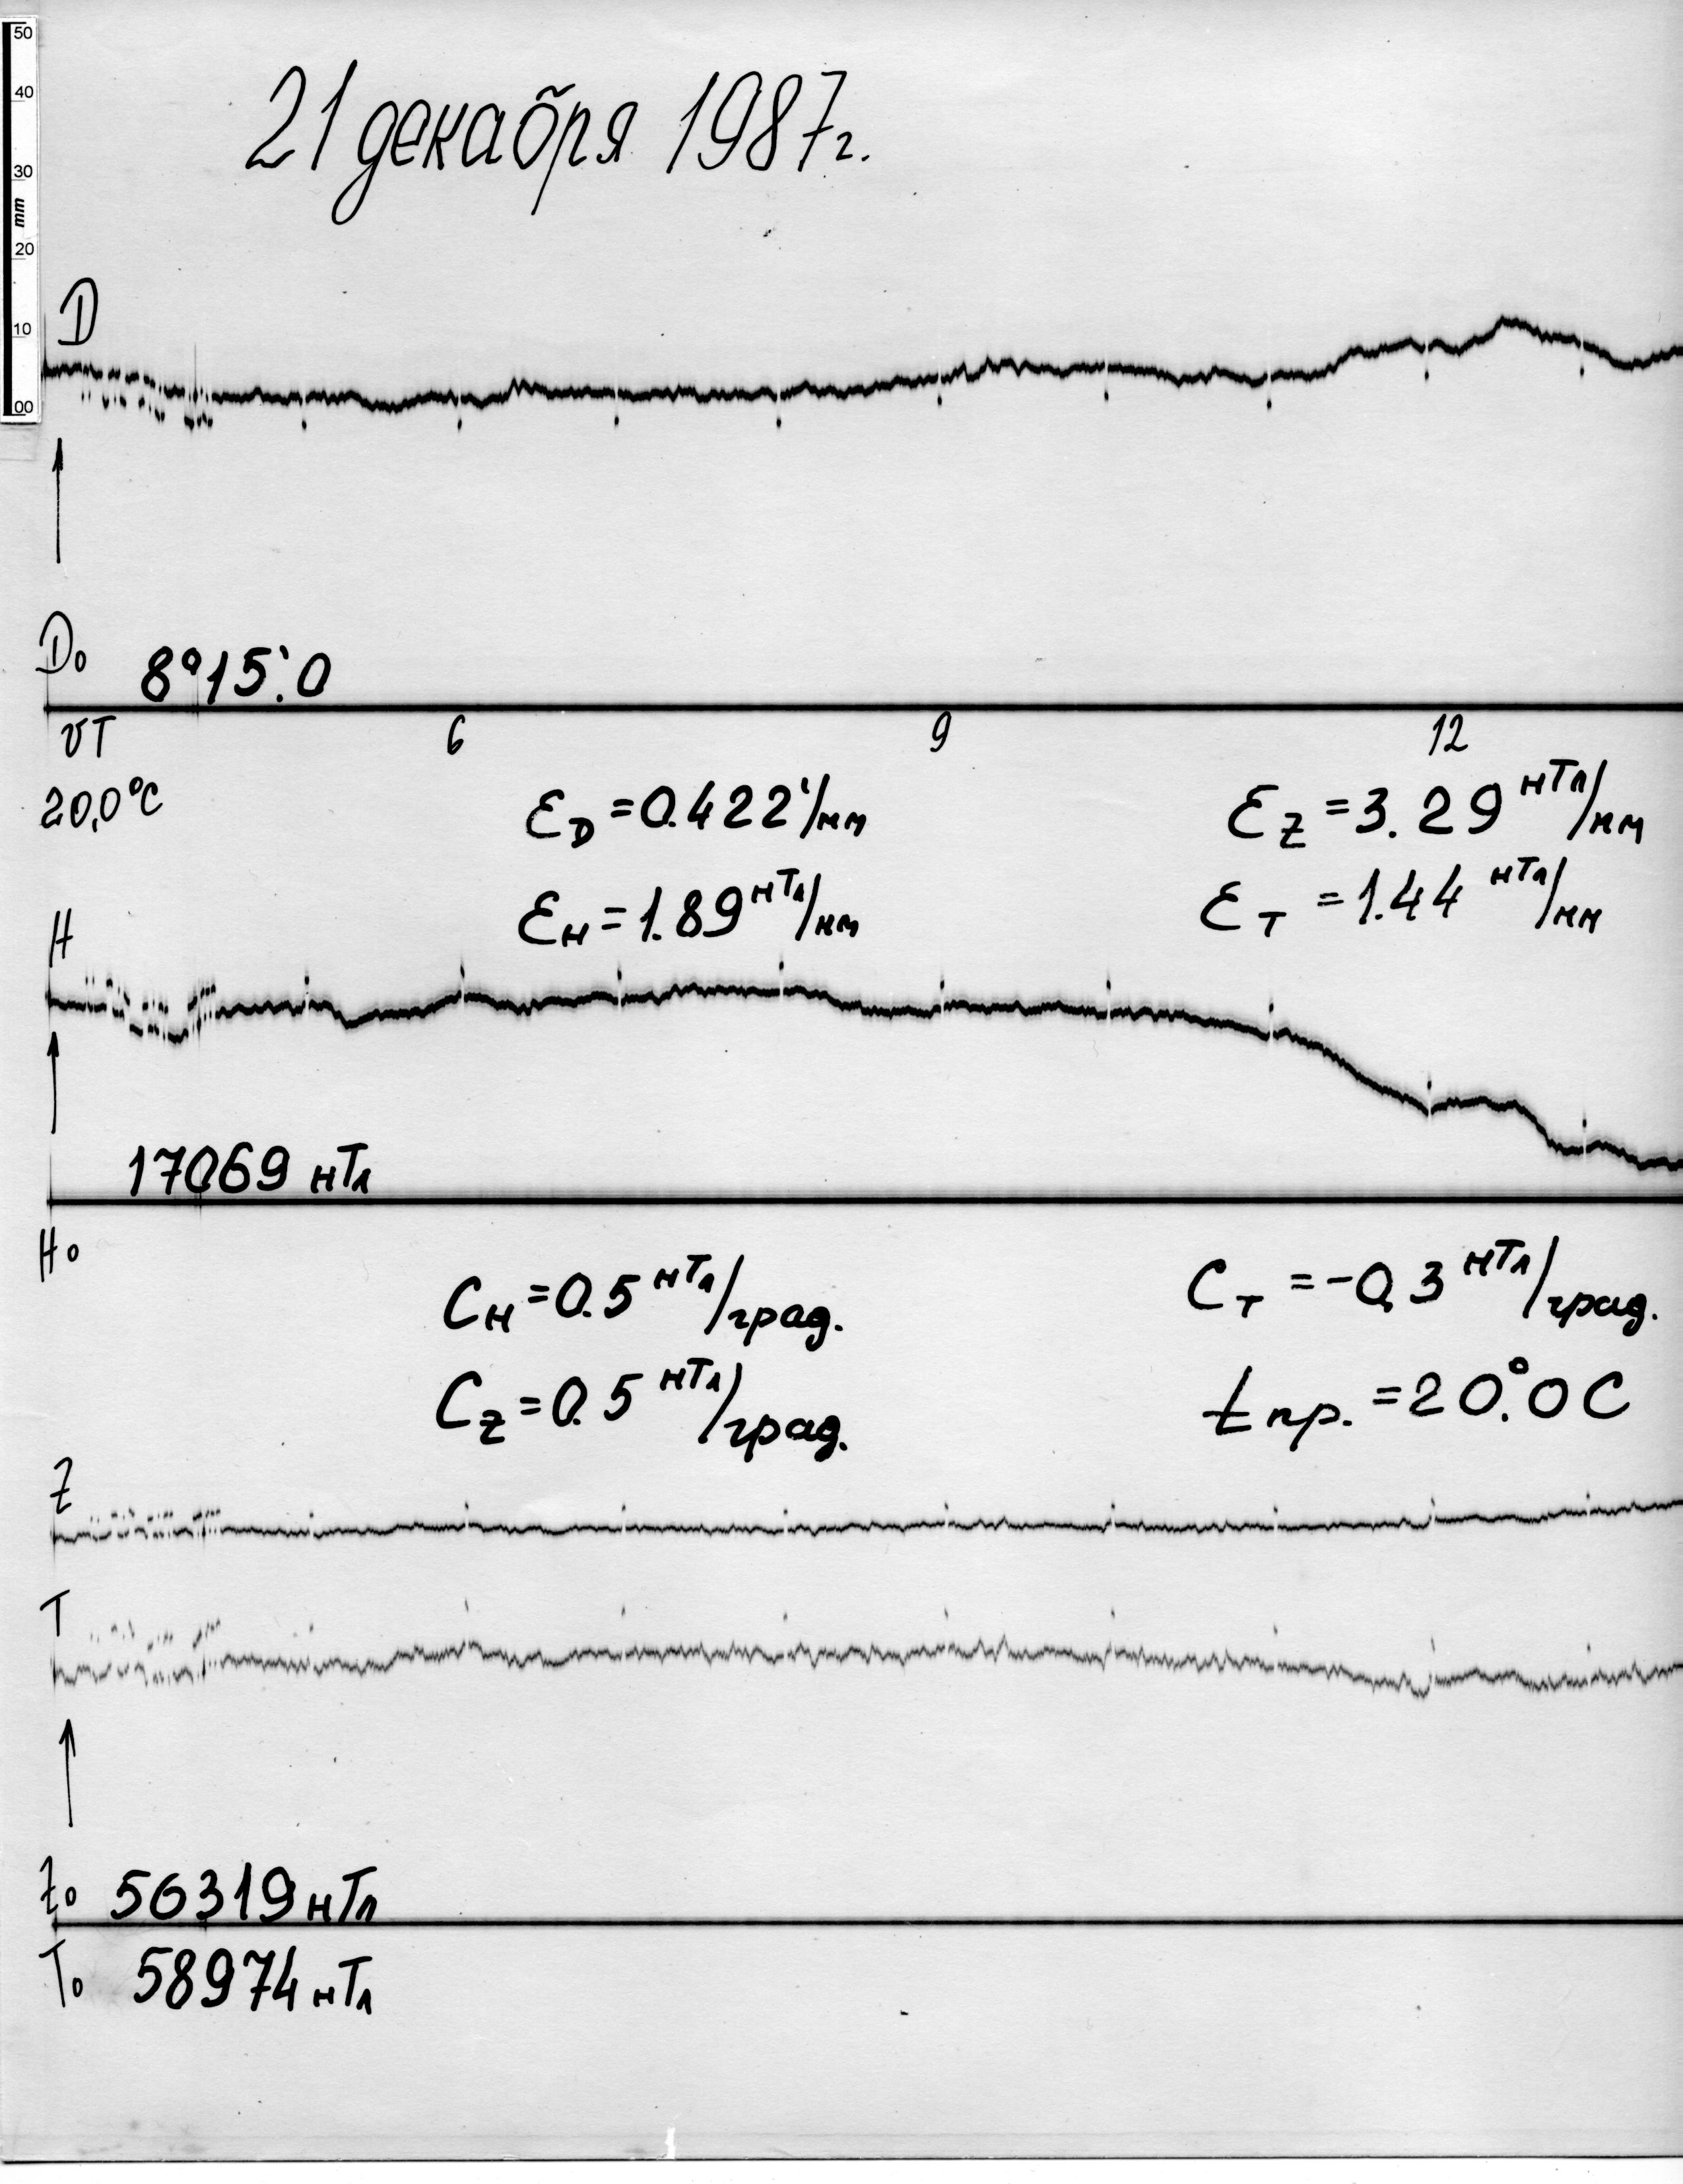 50
40
30
mm
20
10
00
21 декабря 1987г.
D
D₀ 8°15.'0
UT 6 9 12
20,0°C
ε_D = 0.422'/мм ε_Z = 3.29 нТл/мм
ε_H = 1.89 нТл/мм ε_T = 1.44 нТл/мм
H
17069 нТл
H₀
C_H = 0.5 нТл/град. C_T = -0,3 нТл/град.
C_Z = 0.5 нТл/град. t пр. = 20.°0 C
Z
T
Z₀ 56319 нТл
T₀ 58974 нТл